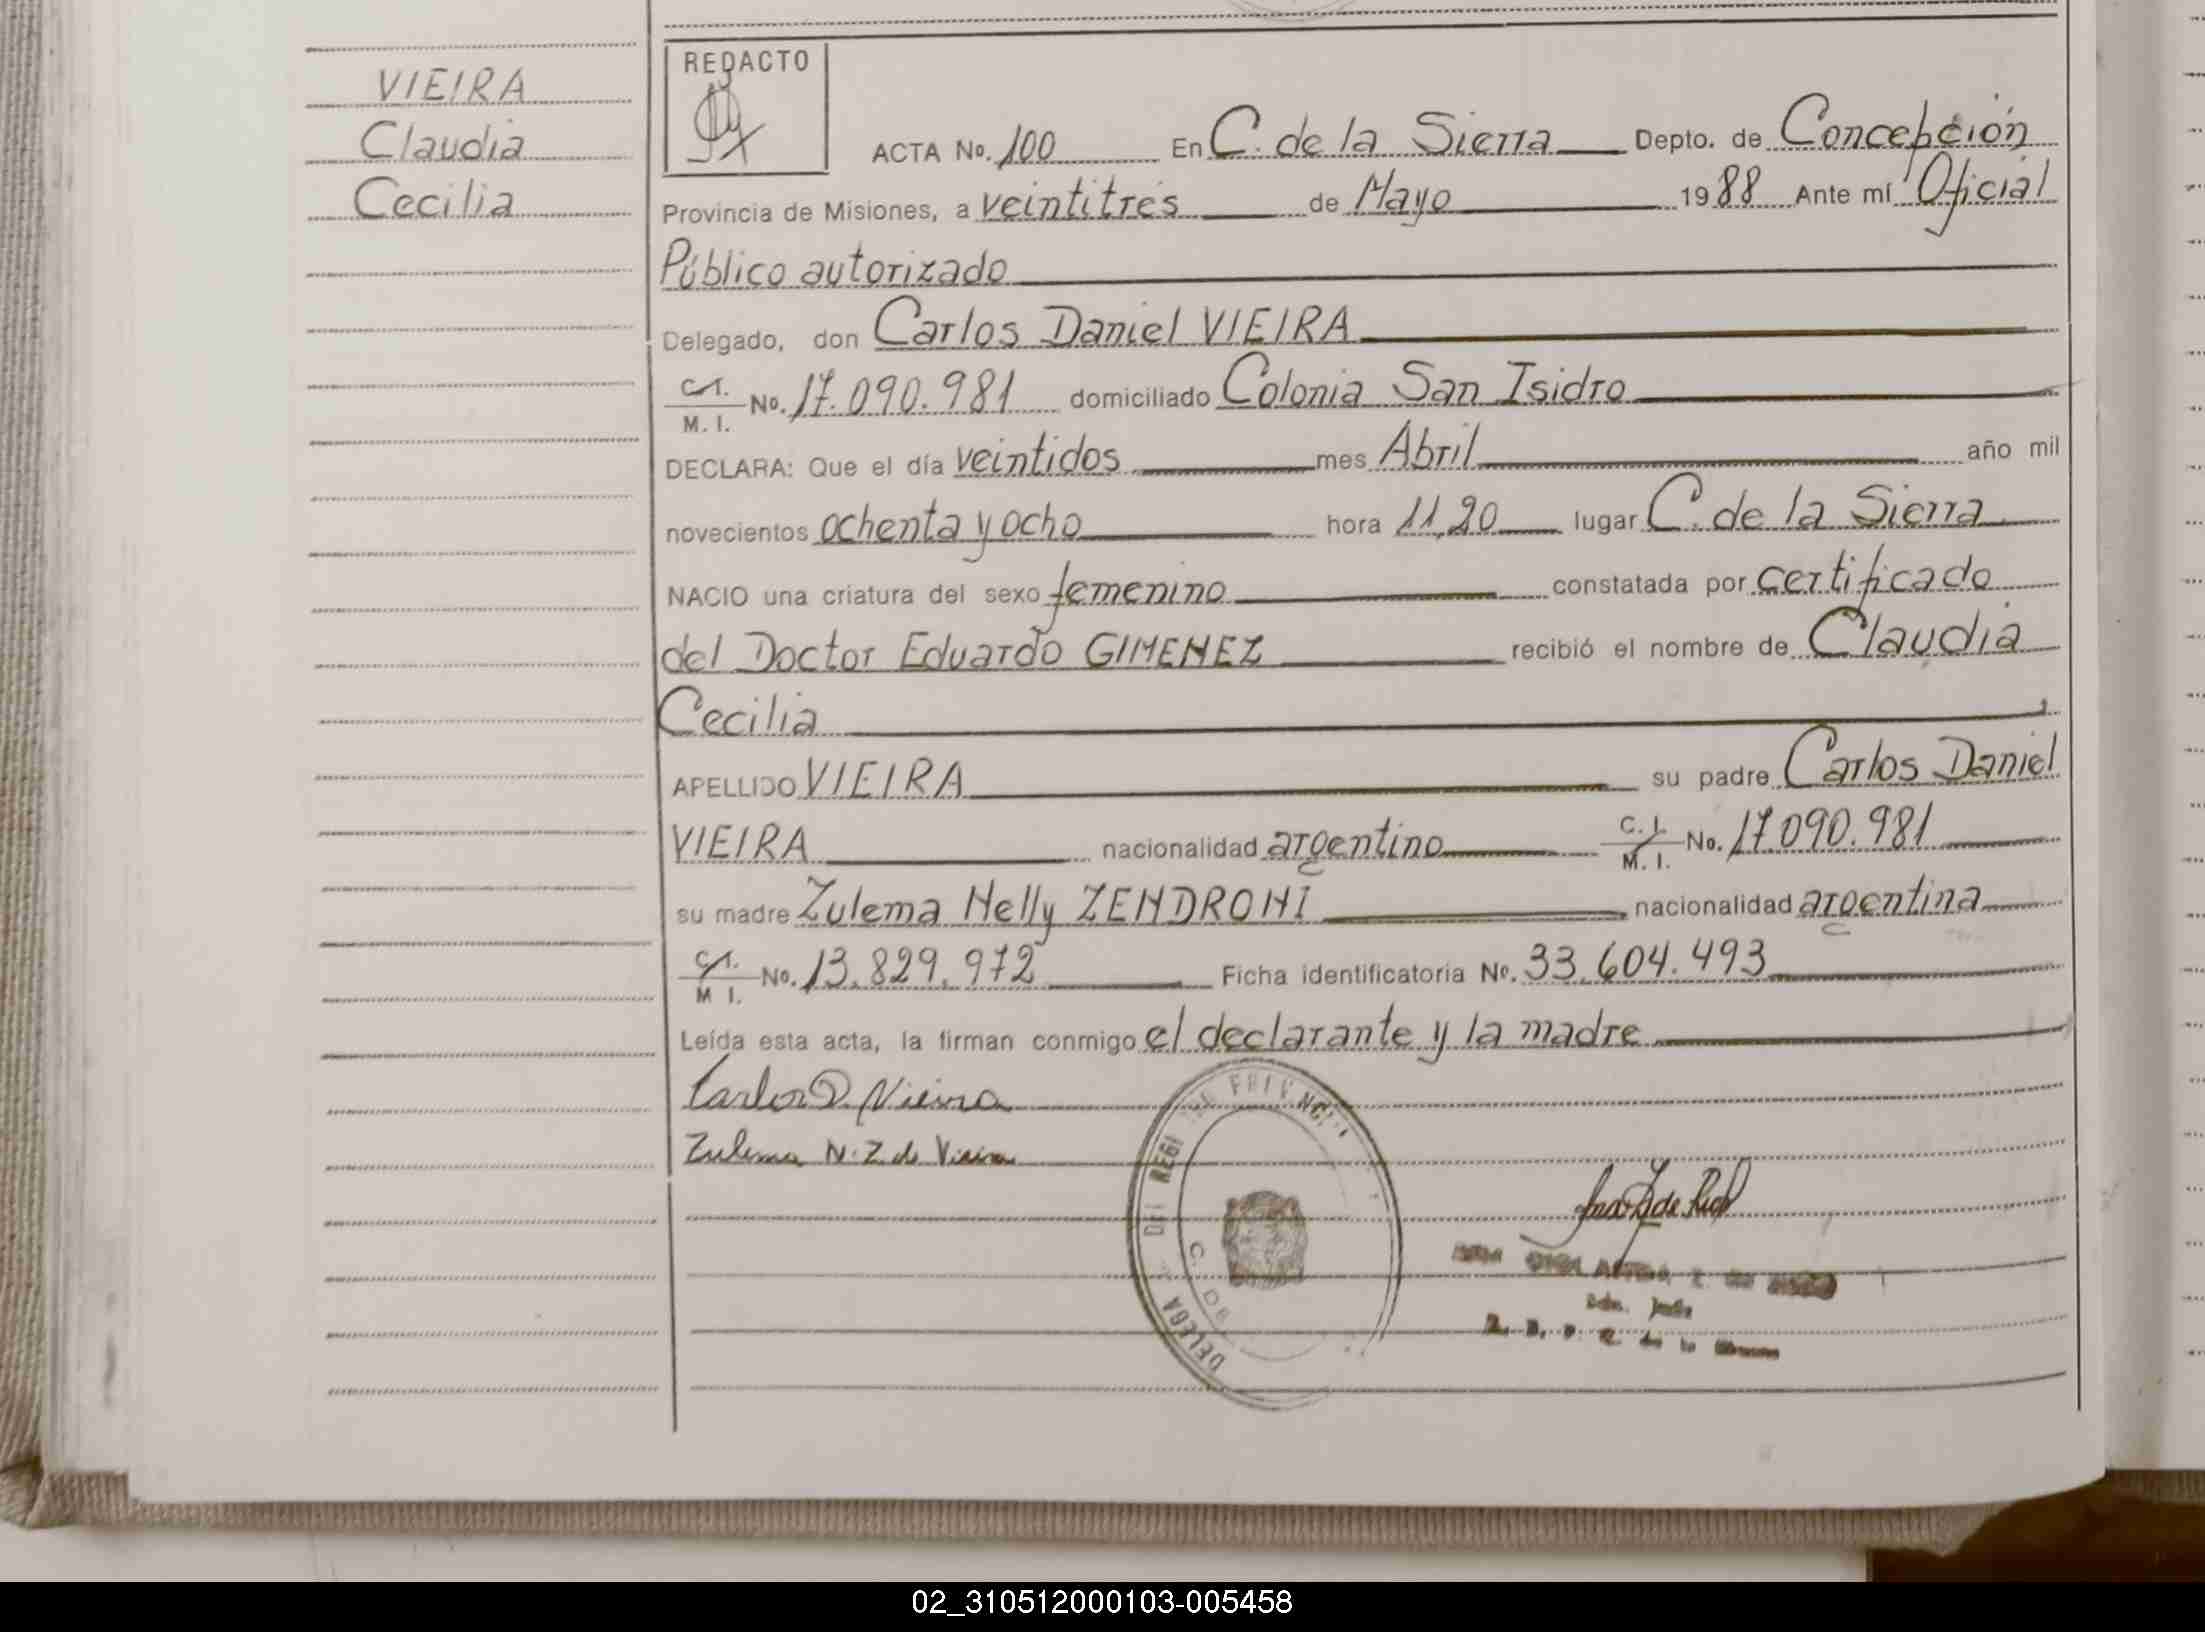 VIEIRA
Claudia
Cecilia
REDACTO
ACTA No. 100 En C. de la Sierra Depto. de Concepción
Provincia de Misiones, a veintitrés de Mayo 1988 Ante mí Oficial
Público autorizado
Delegado, don Carlos Daniel VIEIRA
C.I.
M. I. No. 17.090.981 domiciliado Colonia San Isidro
DECLARA: Que el día veintidos mes Abril año mil
novecientos ochenta y ocho hora 11,20 lugar C. de la Sierra
NACIO una criatura del sexo femenino constatada por certificado
del Doctor Eduardo GIMENEZ recibió el nombre de Claudia
Cecilia
APELLIDO VIEIRA su padre Carlos Daniel
VIEIRA nacionalidad argentino C. I. M. I. No. 17.090.981
su madre Zulema Nelly ZENDRONI nacionalidad argentina
C.I. M I. No. 13.829.972 Ficha identificatoria No. 33.604.493
Leída esta acta, la firman conmigo el declarante y la madre
Carlos D. Vieira
Zulema N. Z. de Vieira
02_310512000103-005458